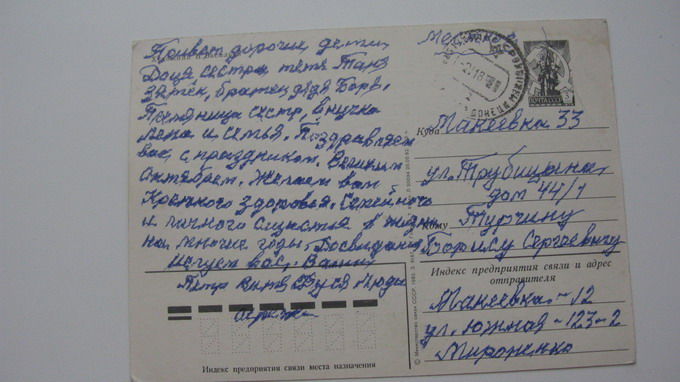 Привет дорогие детки,
Доця сестра тётя Таня
зятёк, братец дядя Боря,
Племяница сестр, внучка
Лена и семья. Поздравляем
вас с праздником. Великим
октябрем. Желаем вам
Крепкого здоровья. Семейного
и личного счастья в жизни
на многие годы. Досвидания
целуем вас. Ваши
Петр Витя Люда
ПОЧТА СССР
Куда
Макеевка 33
ул. Трубицына
дом 44/1
Кому
Турчину
Борису Сергеевичу
Индекс предприятия связи и адрес
отправителя
Макеевка-12
ул. Южная-123-2
Мироненко
Индекс предприятия связи места назначения